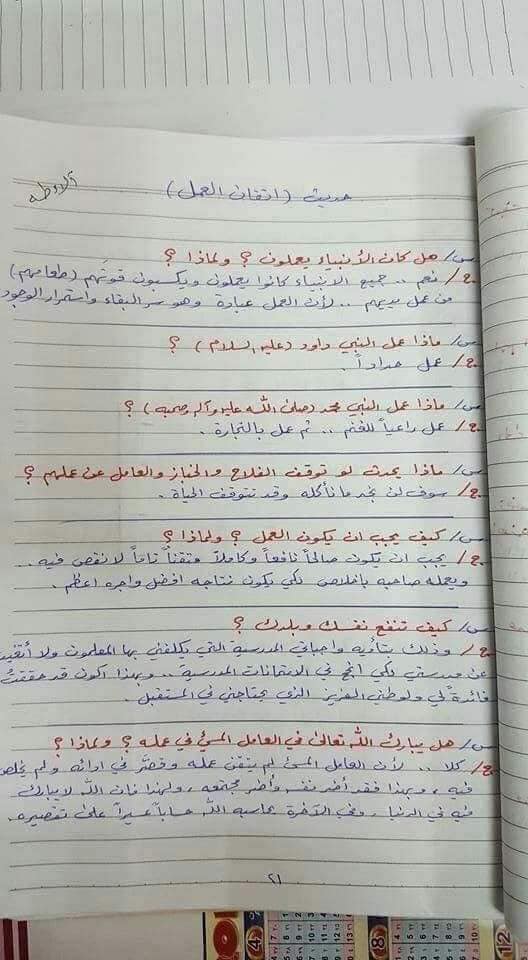 حديث (اتقان العمل)
س/ هل كان الأنبياء يعملون ؟ ولماذا ؟
ج/ نعم .. جميع الانبياء كانوا يعملون ويكسبون قوتهم (طعامهم)
من عمل يديهم .. لأن العمل عبادة وهو سر البقاء واستمرار الوجود
س/ ماذا عمل النبي داود (عليه السلام) ؟
ج/ عمل حداداً .
س/ ماذا عمل النبي محمد (صلى الله عليه وآله وصحبه) ؟
ج/ عمل راعياً للغنم .. ثم عمل بالتجارة .
س/ ماذا يحدث لو توقف الفلاح والخباز والعامل عن عملهم ؟
ج/ سوف لن نجد ما نأكله وقد تتوقف الحياة .
س/ كيف يجب ان يكون العمل ؟ ولماذا ؟
ج/ يجب ان يكون صالحاً نافعاً وكاملاً ومتقناً تاماً لا نقص فيه .
ويعمله صاحبه بإخلاص لكي يكون نتاجه افضل واجره اعظم .
س/ كيف تنفع نفسك وبلدك ؟
ج/ وذلك بتأديه واجباتي المدرسية التي يكلفني بها المعلمون ولا أتغيب
عن مدرستي لكي انجح في الامتحانات المدرسية .. وبهذا اكون قد حققت
فائدة لي ولوطني العزيز الذي يحتاجني في المستقبل .
س/ هل يبارك الله تعالى في العامل المسيء في عمله ؟ ولماذا ؟
ج/ كلا لأن العامل المسيء لم يتقن عمله وقصّر في ادائه ولم يخلص
فيه ، وبهذا فقد أضر نفسه وأضر مجتمعه ، ولهذا فان الله لا يبارك
فيه في الدنيا ، وفي الآخرة يحاسبه الله حساباً عسيراً على تقصيره .
٢١
4
8
12